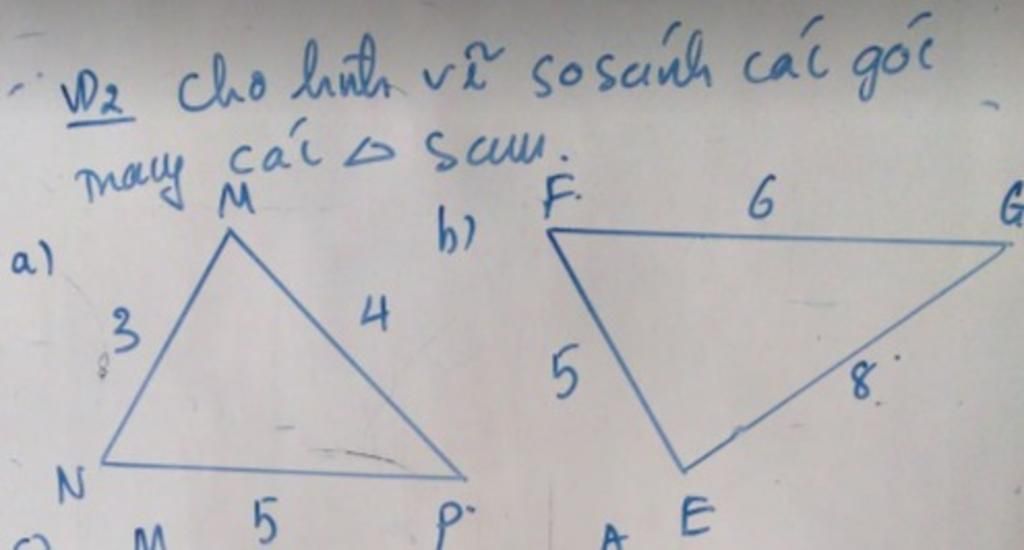 VD2 Cho hình vẽ so sánh các góc
trong các △ sau.
a)
M
3
4
N
5
P
b)
F
6
G
5
8
E
c)
M
A